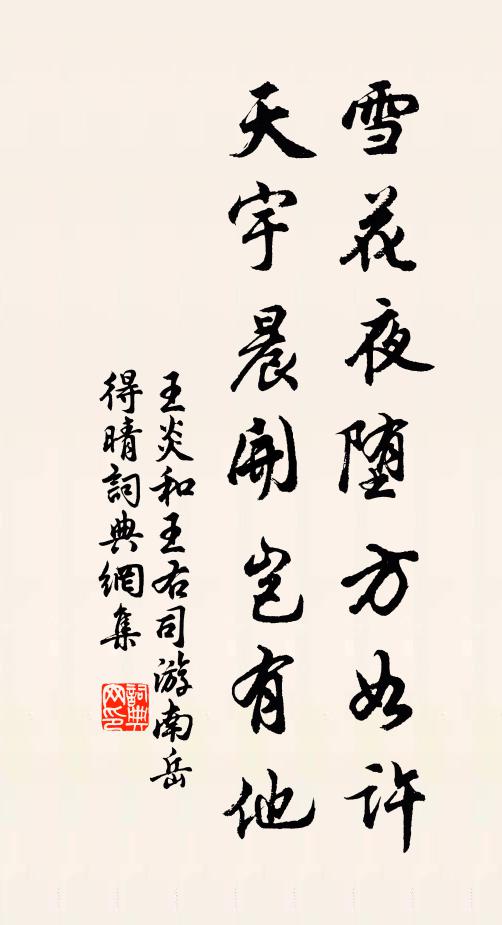 雪花夜堕方如许
天宇晨開岂有他
王炎和王右司游南岳
得晴詞典網集
詞典网印